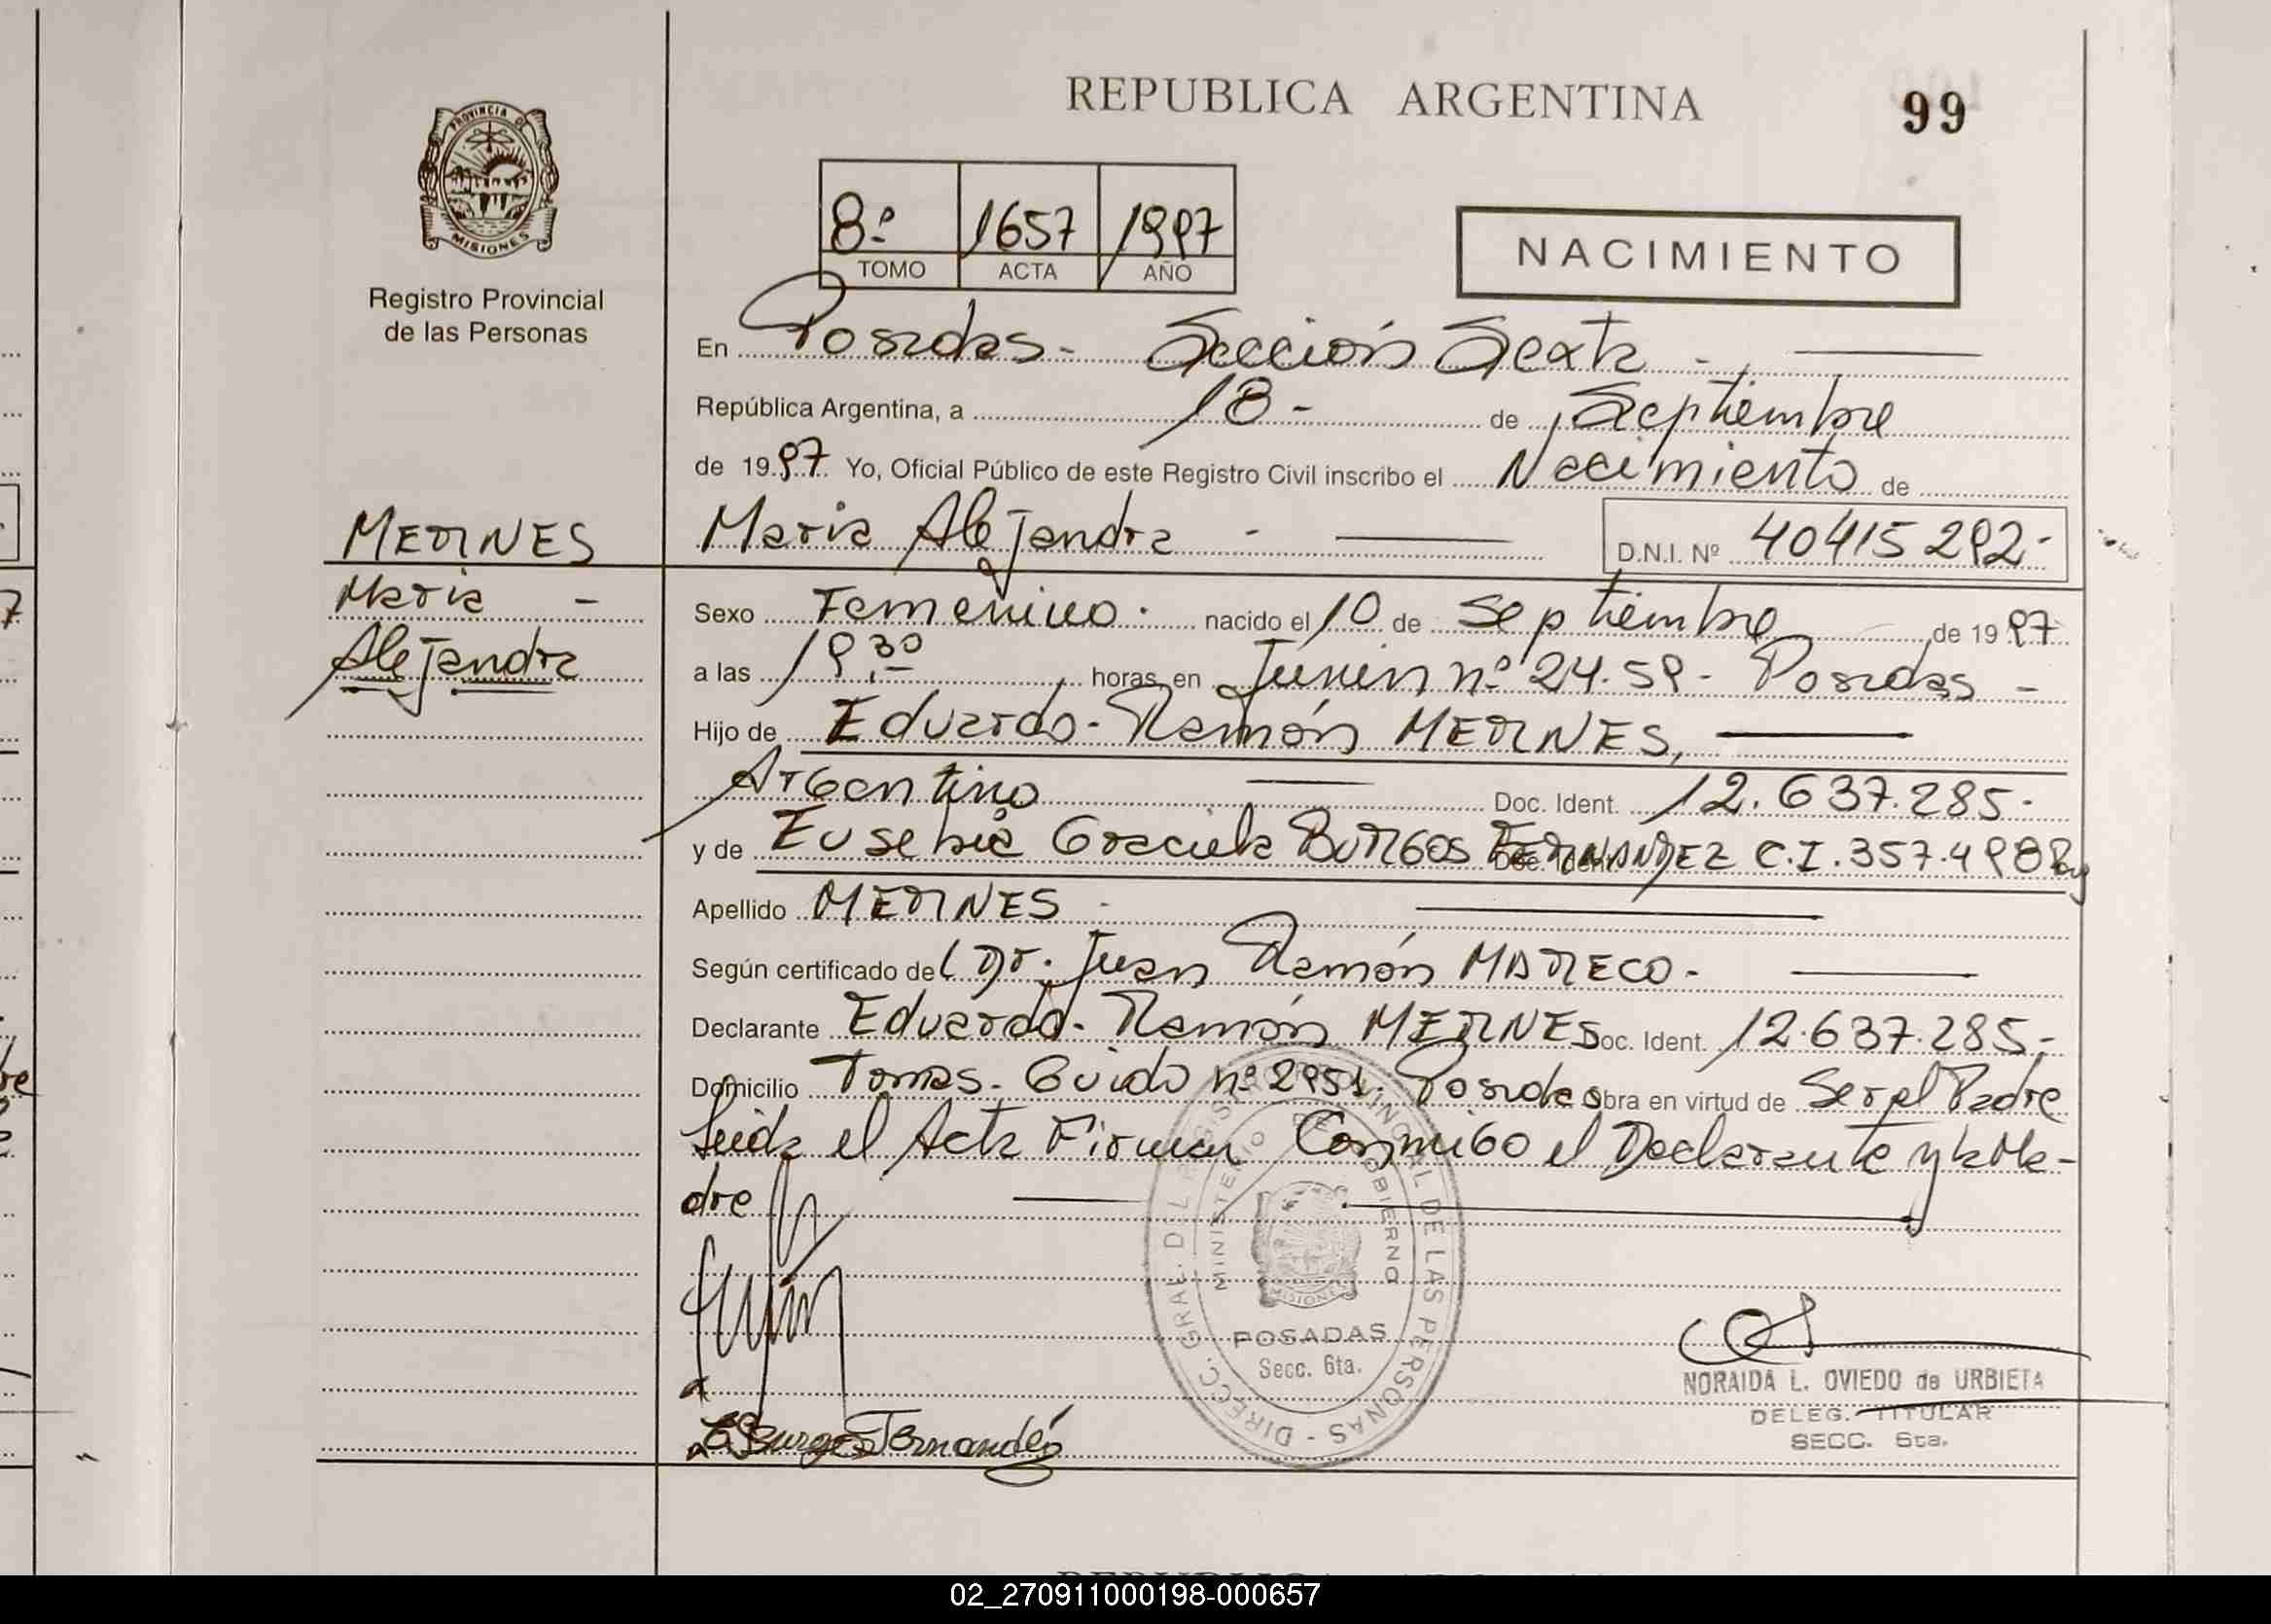 REPUBLICA ARGENTINA
99
PROVINCIA DE
MISIONES
Registro Provincial
de las Personas
8º 1657 1997
TOMO ACTA AÑO
NACIMIENTO
En Posadas - Sección Sexta -
República Argentina, a 18 - de Septiembre
de 1997 Yo, Oficial Público de este Registro Civil inscribo el Nacimiento de
MERNES
Maria Alejandra - D.N.I. Nº 40415292-
Maria -
Alejandra
Sexo Femenino. nacido el 10 de Septiembre de 1997
a las 19,30 horas, en Junin nº 24.59 - Posadas -
Hijo de Eduardo - Ramón MERNES,
Argentino Doc. Ident. 12.637.285.
y de Eusebia Graciela BURGOS FERNANDEZ Doc. Ident. C.I. 357.498
Apellido MERNES -
Según certificado del Dr. Juan Ramón MARECO -
Declarante Eduardo - Ramón MERNES Doc. Ident. 12.637.285.-
Domicilio Tomas - Guido nº 2951. Posadas Obra en virtud de Ser el Padre
Leida el Acta Firman Conmigo el Declarante y la Ma-
dre
DIRECC. GRAL. DEL REGISTRO PROVINCIAL DE LAS PERSONAS -
MINISTERIO DE GOBIERNO
MISIONES
POSADAS
Secc. 6ta.
E Burgos Fernandez
NORAIDA L. OVIEDO de URBIETA
DELEG. TITULAR
SECC. 6ta.
02_270911000198-000657